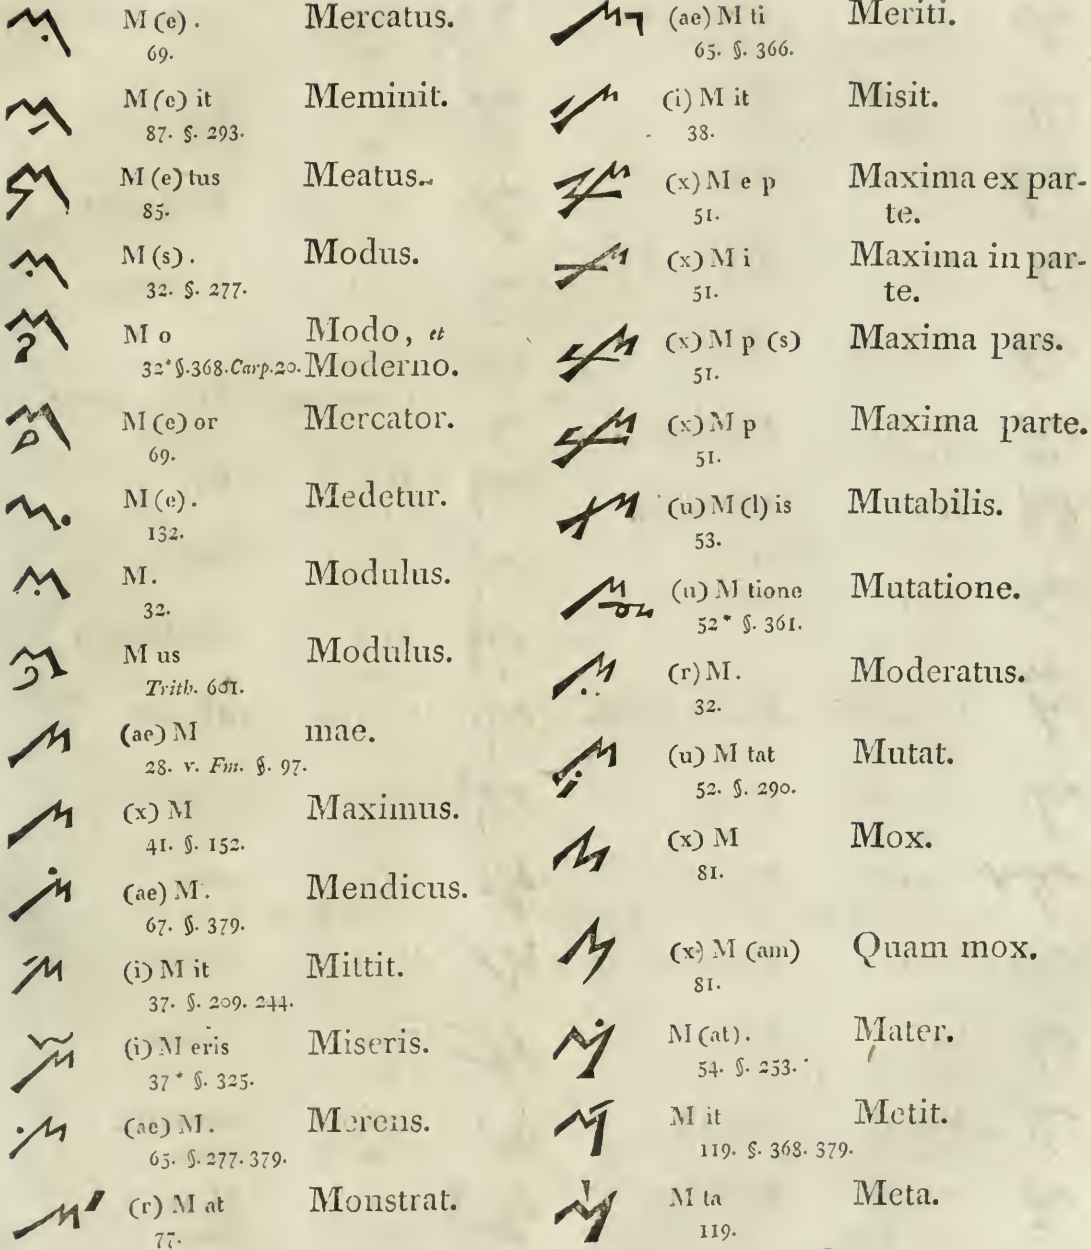 M (e) . Mercatus.
69.
M (e) it Meminit.
87. §. 293.
M (e) tus Meatus.
85.
M (s) . Modus.
32. §. 277.
M o Modo, et
32* §. 368. Carp. 20. Moderno.
M (e) or Mercator.
69.
M (e) . Medetur.
132.
M. Modulus.
32.
M us Modulus.
Trith. 601.
(ae) M mae.
28. v. Fm. §. 97.
(x) M Maximus.
41. §. 152.
(ae) M. Mendicus.
67. §. 379.
(i) M it Mittit.
37. §. 209. 244.
(i) M eris Miseris.
37* §. 325.
(ae) M. Merens.
65. §. 277. 379.
(r) M at Monstrat.
77.
(ae) M ti Meriti.
65. §. 366.
(i) M it Misit.
38.
(x) M e p Maxima ex par-
51. te.
(x) M i Maxima in par-
51. te.
(x) M p (s) Maxima pars.
51.
(x) M p Maxima parte.
51.
(u) M (l) is Mutabilis.
53.
(u) M tione Mutatione.
52* §. 361.
(r) M. Moderatus.
32.
(u) M tat Mutat.
52. §. 290.
(x) M Mox.
81.
(x) M (am) Quam mox.
81.
M (at). Mater.
54. §. 253.
M it Metit.
119. §. 368. 379.
M ta Meta.
119.